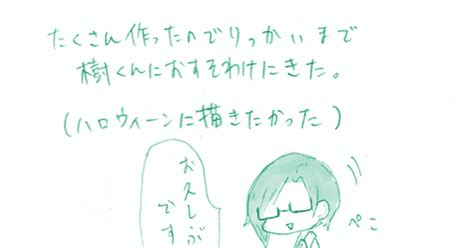 たくさん作ったのでりっかいまで
樹くんにおすそわけにきた。
(ハロウィーンに描きたかった)
お久しぶ
です
ぺこ